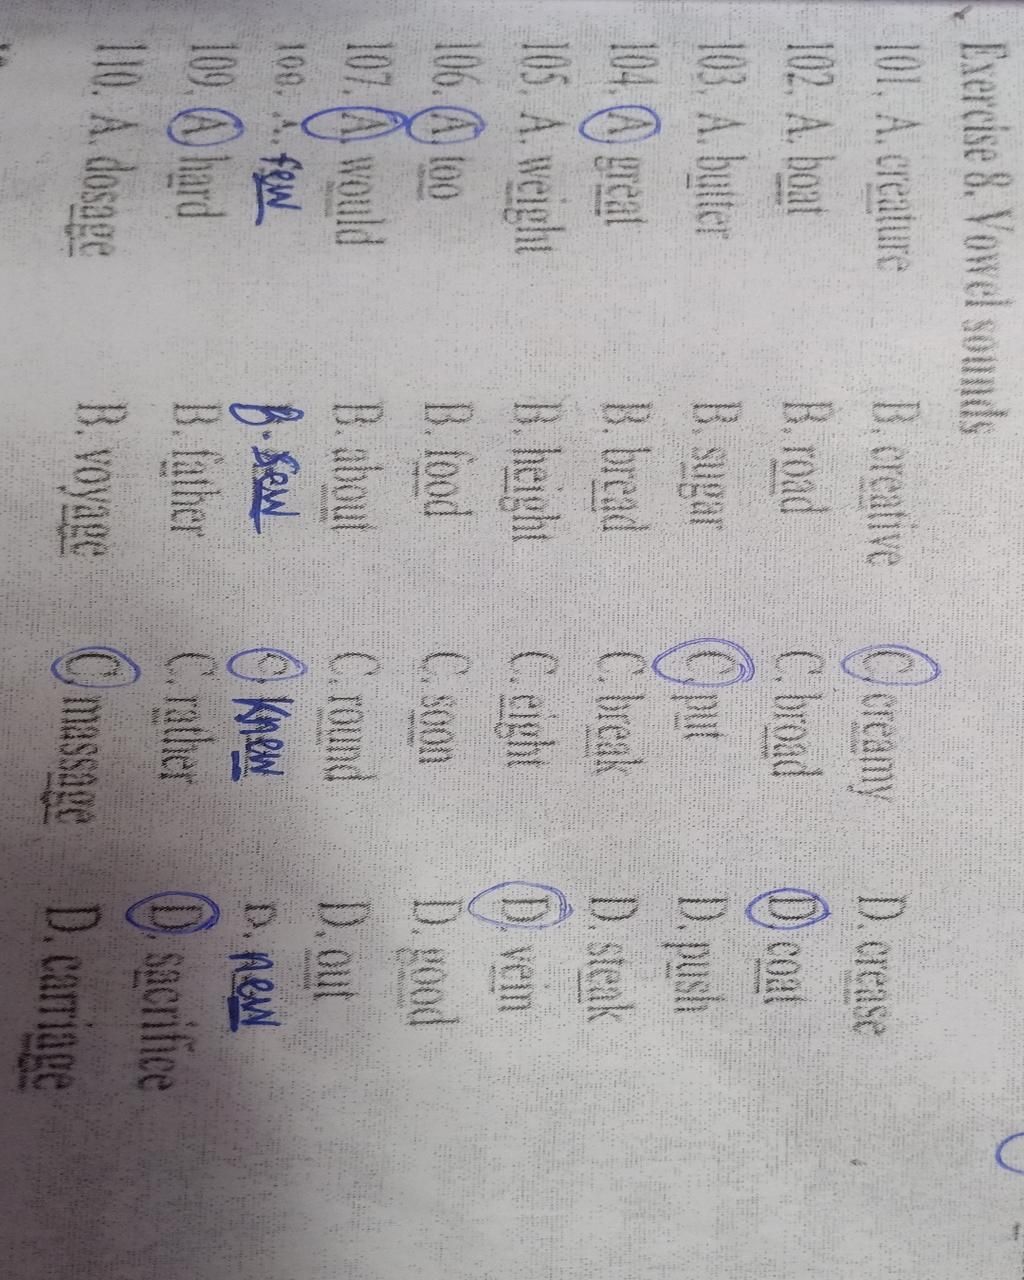 Exercise 8. Vowel sounds
101. A. creature B. creative C. creamy D. crease
102. A. boat B. road C. broad D. coat
103. A. butter B. sugar C. put D. push
104. A. great B. bread C. break D. steak
105. A. weight B. height C. eight D. vein
106. A. too B. food C. soon D. good
107. A. would B. about C. round D. out
108. A. few B. sew C. knew D. new
109. A. hard B. father C. rather D. sacrifice
110. A. dosage B. voyage C. massage D. carriage